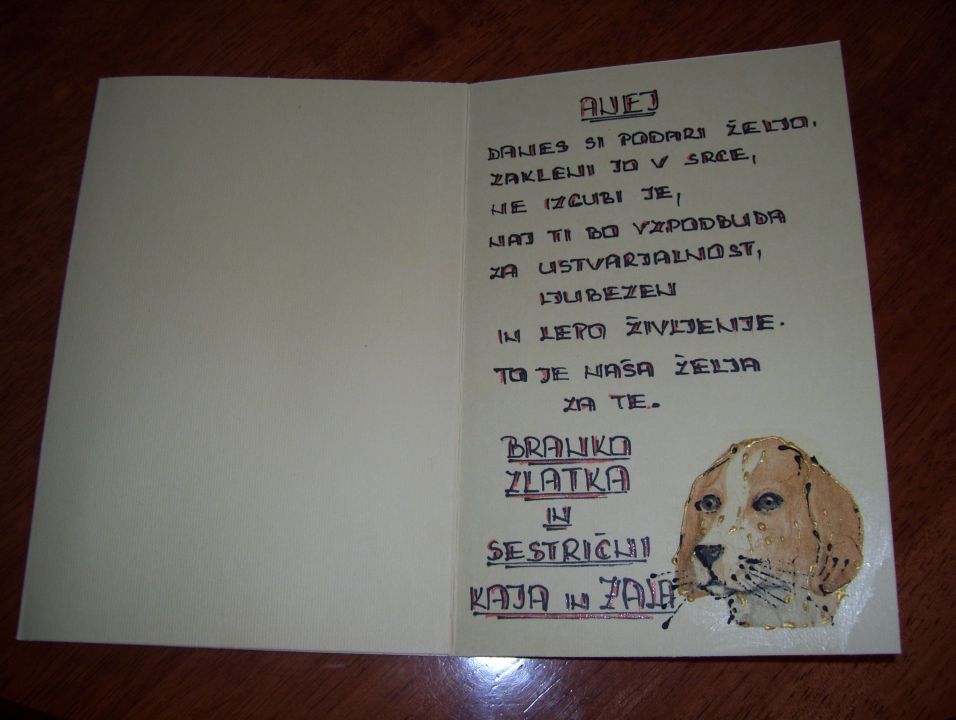 ANEJ
DANES SI PODARI ŽELJO.
ZAKLENI JO V SRCE,
NE IZGUBI JE,
NAJ TI BO VZPODBUDA
ZA USTVARJALNOST,
LJUBEZEN
IN LEPO ŽIVLJENJE.
TO JE NAŠA ŽELJA
ZA TE.
BRANKO
ZLATKA
IN
SESTRIČNI
KAJA IN ZALA